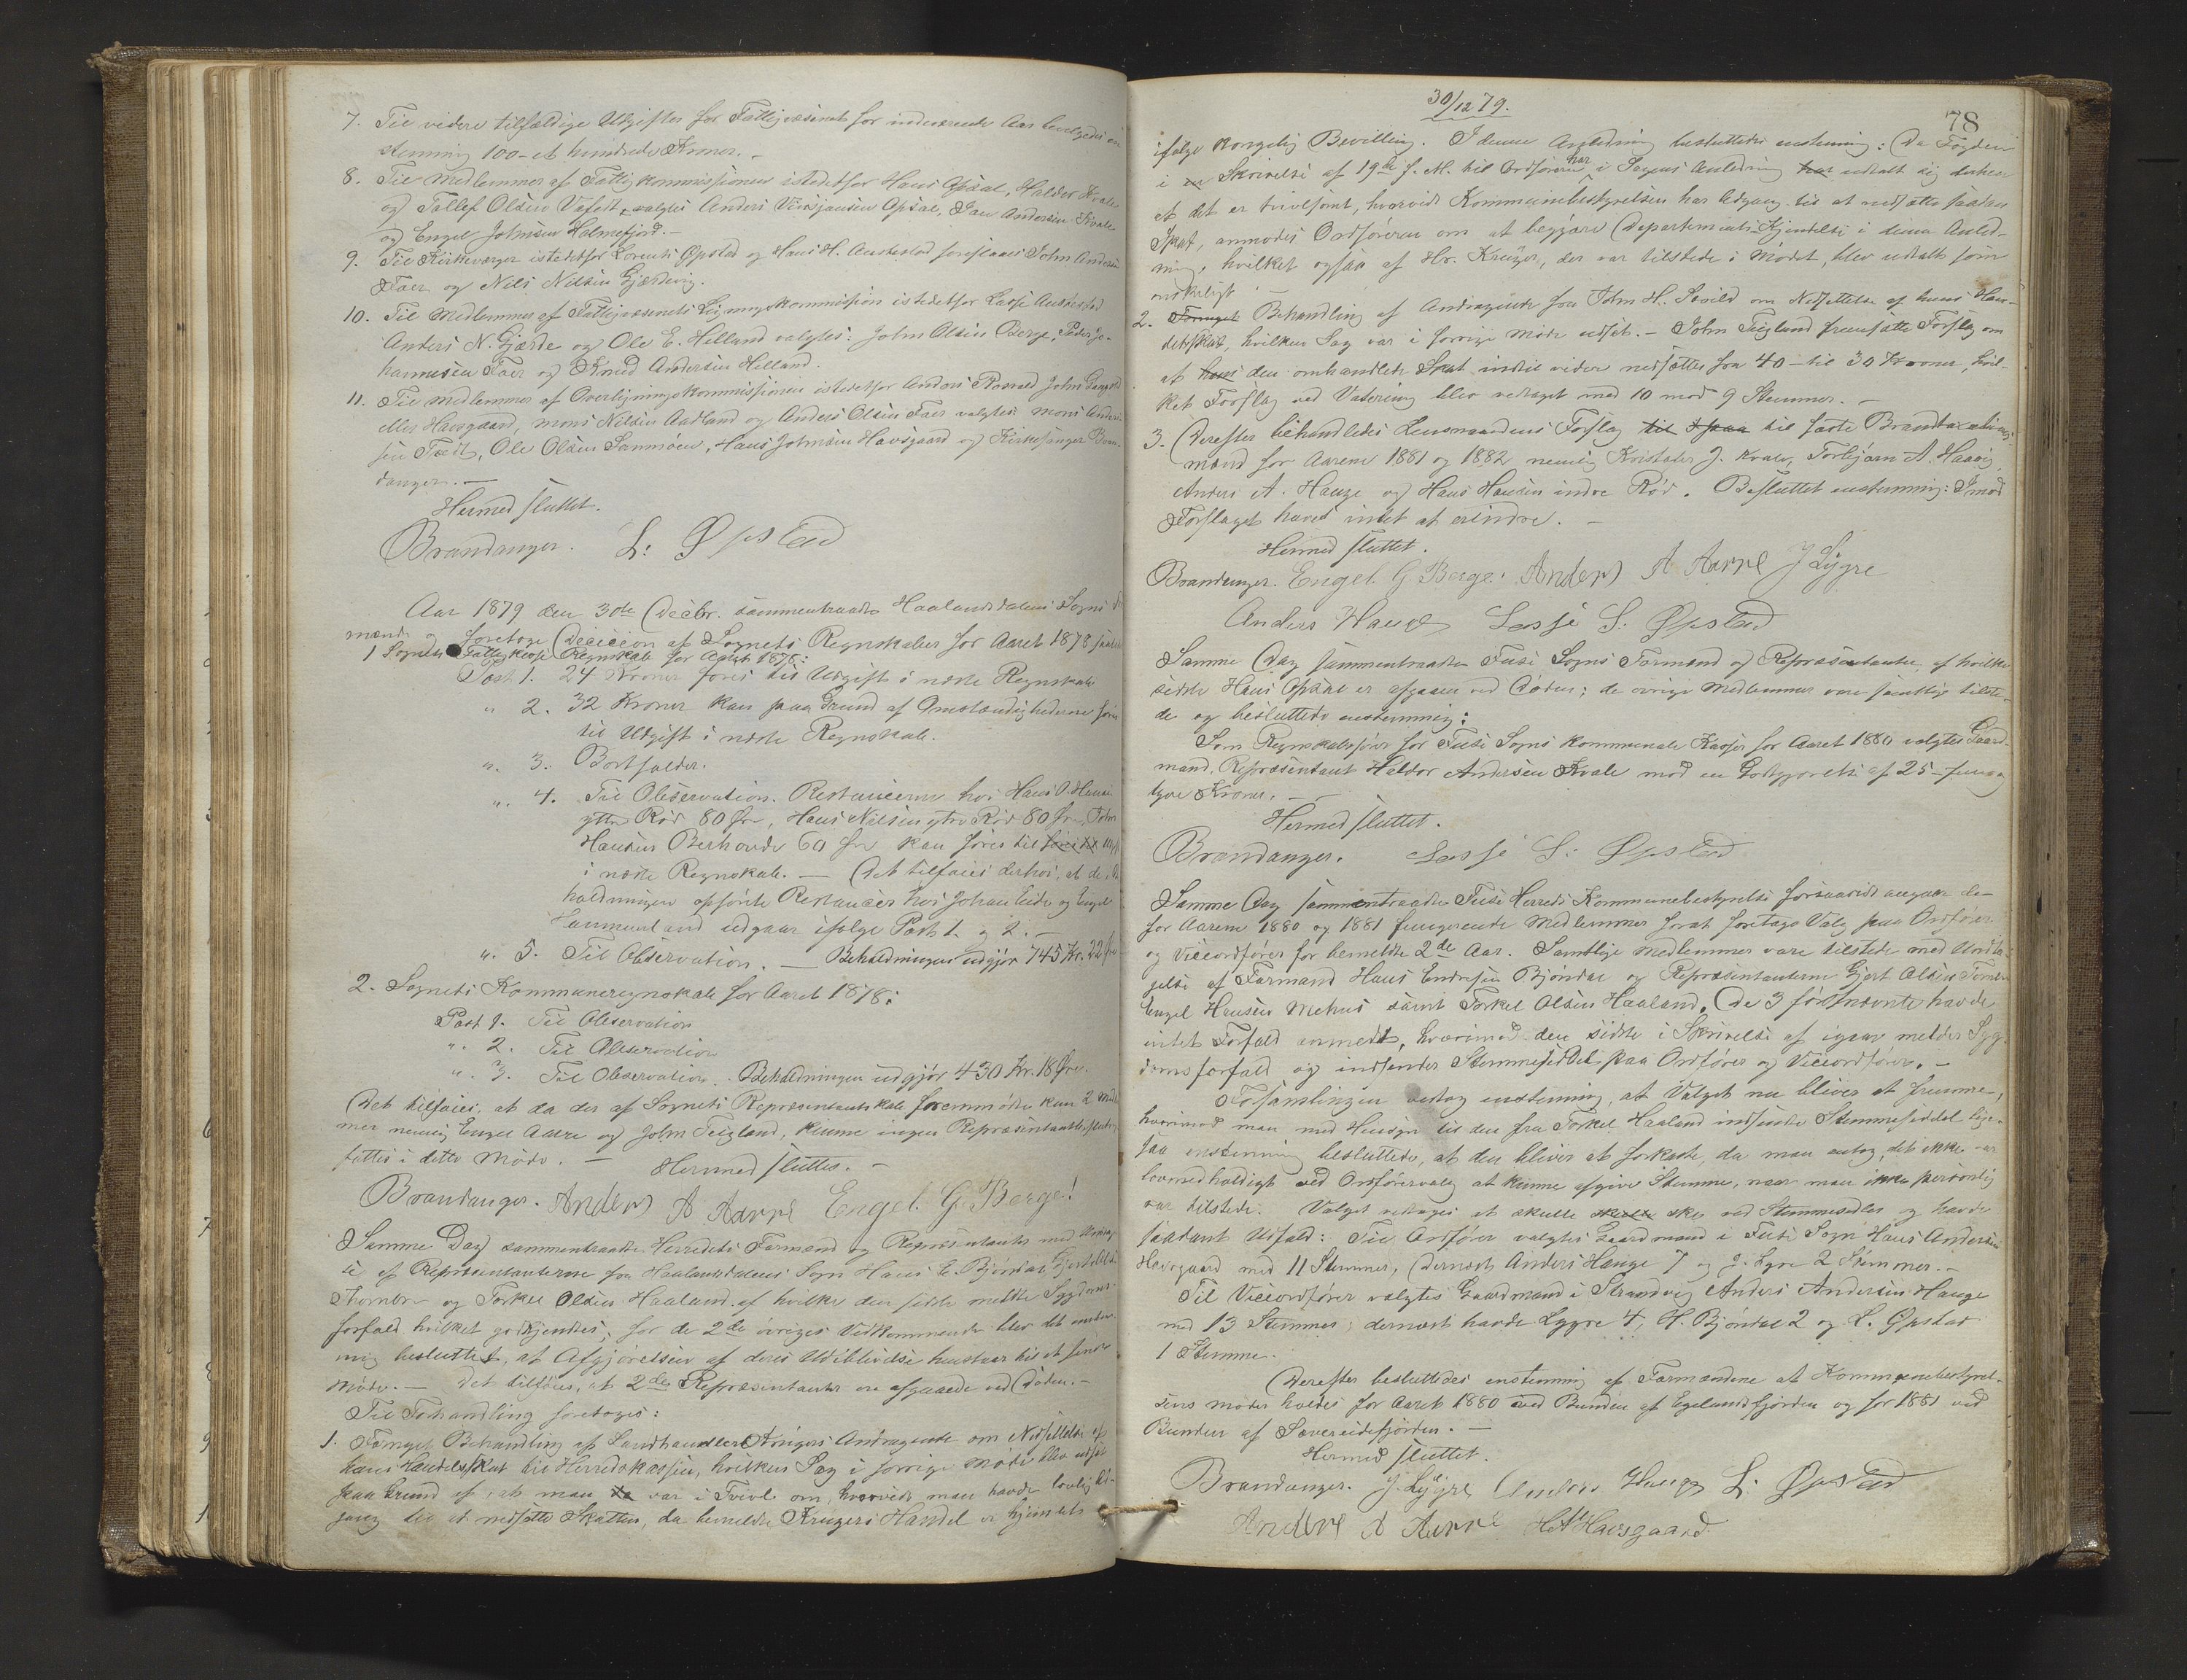 7. Til videre tilfældige Udgifter for Fattigvæsenet for indeværende Aar bevilgedes en-
stemmig 100 - et hundrede Kroner. -
8. Til Medlemmer af Fattigkommissionen istedetfor Hans Opsal, Haldor Kvale
og Tollef Olsen valgtes Anders Opsal, Jan Andersen Kvale
og Engel Johnsen Holmefjord. -
9. Til Kirkeværger istedetfor Lorents Øpstad og Hans H. Austestad foreslaaes John Andersen
Faer og Nils Nilsen Gjerdevig.
10. Til Medlemmer af Fattigvæsenets Ligningskommission istedetfor Lasse Austestad
Anders N. Gjerde og Ole E. Helland valgtes: John Olsen Berge, Peder Jo-
hannesen Faer og Knud Andersen Helland.
11. Til Medlemmer af Overligningskommissionen istedetfor Anders John
eller Havsgaard, Mons Nilsen Aadland og Anders Olsen Faer valgtes: Mons Ander-
sen Tveit, Ole Olsen Sammøen, Hans Johnsen Havsgaard og Kirkesanger Bran-
danger. -
Hermed sluttet.
Brandanger. L: Øpstad
Aar 1879 den 30te Decbr. sammentraadte Haalandsdalens Sogns
mænd og foretoge Decision af Sognets Regnskaber for Aaret 1878
1 Sognets Fattigkasse Regnskab for Aaret 1878:
Post 1. 24 Kroner føres til Udgift i næste Regnskab
" 2. 32 Kroner kan paa Grund af Omstændighederne føres
til Udgift i næste Regnskab.
" 3. Bortfalder.
" 4. Til Observation. Restancerne hos Hans O. Hansen
ytre Rød 80 Øre, Hans Nilsen ytre Rød 80 Øre, John
Hansen Berhovde 60 Øre kan føres til
i næste Regnskab. - Det tilføies derhos, at de i Be-
holdningen opførte Restancer hos Johan Eide og Engel
Hammerland udgaar ifølge Post 1. og 2. -
" 5. Til Observation. - Beholdningen udgjør 745 Kr. 22 Øre
2. Sognets Kommuneregnskab for Aaret 1878:
Post 1. Til Observation
" 2. Til Observation
" 3. Til Observation. Beholdningen udgjør 430 Kr. 18 Øre.
Det tilføies, at da der af Sognets Repræsentantskab fremmødte kun 2 Medlem-
mer nemlig Engel Aarre og John Teigland, kunne ingen Repræsentantbeslutning
fattes i dette Møde. - Hermed sluttes. -
Brandanger. Anders A Aarre Engel. G. Berge!
Samme Dag sammentraadte Herredets Formænd og Repræsentanter med Undtagel-
se af Repræsentanterne fra Haalandsdalens Sogn Hans E. Bjøndal, Gjert Olsen
og Torkel Olsen Haaland af hvilke den sidste meldte Sygdoms-
forfald hvilket godkjendtes; for de 2de øvriges Vedkommende blev det enstem-
mig besluttet, at Afgjørelsen af deres Udeblivelse henstaar til et senere
Møde. - Det tilføies, at 2de Repræsentanter ere afgaaede ved Døden. -
Til Forhandling foretoges:
1. Fornyet Behandling af Landhandler Krügers Andragende om Nedsettelse af
hans Handelsskat til Herredskassen, hvilken Sag i forrige Møde blev udsat
paa Grund af, at man var i Tvivl om, hvorvidt man havde lovlig Ad-
gang til at nedsætte Skatten, da bemeldte Krugers Handel er hjemlet
30/12 79.
78
ifølge kongelig Bevilling. I denne Anledning besluttedes enstemmig: Da Fogden
i en Skrivelse af 19de f. M. til Ordføreren har i Sagens Anledning har udtalt sig derhen
at det er tvivlsomt, hvorvidt Kommunebestyrelsen har Adgang til at nedsætte saadan
Skat, anmodes Ordføreren om at begjære Departements-Kjendelse i denne Anled-
ning, hvilket ogsaa af Hr. Krüger, der var tilstede i Mødet, blev udtalt som
ønskeligt
2. Fornyet Behandling af Andragende fra John H. Søvild om Nedsettelse af hans Han-
delsskat, hvilken Sag var i forrige Møde udsat. - John Teigland fremsatte Forslag om
at hans den omhandlede Skat indtil videre nedsættes fra 40 - til 30 Kroner, hvil-
ket Forslag ved Votering blev vedtaget med 10 mod 9 Stemmer. -
3. Derefter behandledes Lensmandens Forslag til til faste Brandtaxations-
mænd for Aarene 1881 og 1882 nemlig Kristofer J. Kvale, Torbjørn A. Haavig
Anders A. Hauge og Hans Hansen indre Rød. Besluttet enstemmig: Imod
Forslaget havdes intet at erindre. -
Hermed sluttet.
Brandanger. Engel. G. Berge. Anders A Aarre J Lygre
Anders Hauge Lasse L. Øpstad
Samme Dag sammentraadte Fuse Sogns Formænd og Repræsentanter, af hvilke
sidste Hans Opsal er afgaaen ved Døden; de øvrige Medlemmer vare samtlige tilste-
de og besluttede enstemmig:
Som Regnskabsfører for Fuse Sogns kommunale Kasser for Aaret 1880 valgtes Gaard-
mand, Repræsentant Haldor Andersen Kvale mod en Godtgjørelse af 25 - fem og
tyve Kroner. -
Hermed sluttet.
Brandanger. Lasse L: Øpstad
Samme Dag sammentraadte Fuse Herreds Kommunebestyrelse forsaavidt angaar de
for Aarene 1880 og 1881 fungerende Medlemmer forat foretage Valg paa Ordfører
og Viceordfører for bemeldte 2de Aar. Samtlige Medlemmer vare tilstede med Undta-
gelse af Formand Hans Endresen Bjøndal og Repræsentanterne Gjert Olsen
Engel Hansen Mehus samt Torkel Olsen Haaland. De 3 førstnævnte havde
intet Forfald anmeldt, hvorimod den sidste i Skrivelse af igaar melder Syg-
domsforfald og indsender Stemmeseddel paa Ordfører og Viceordfører. -
Forsamlingen vedtog enstemmig, at Valget nu bliver at fremme,
hvorimod man med Hensyn til den fra Torkel Haaland indsendte Stemmeseddel lige-
saa enstemmig besluttede, at den bliver at forkaste, da man antog, det ikke var
lovmedholdigt ved Ordførervalg at kunne afgive Stemme, naar man ikke personlig
var tilstede. Valget vedtoges at skulle skulle ske ved Stemmesedler og havde
saadant Udfald: Til Ordfører valgtes Gaardmand i Fuse Sogn Hans Andersen
Havsgaard med 11 Stemmer, dernæst Anders Hauge 7 og J. Lygre 2 Stemmer. -
Til Viceordfører valgtes Gaardmand i Strandvig Anders Andersen Hauge
med 13 Stemmer; dernæst havde Lygre 4, H. Bjøndal 2 og L. Øpstad
1 Stemme.
Derefter besluttedes enstemmig af Formændene at Kommunebestyrel-
sens Møder holdes for Aaret 1880 ved Bunden af Egelandsfjorden og for 1881 ved
Bunden af Sævereidefjorden. -
Hermed sluttet.
Brandanger. J. Lygre Anders Hauge L: Øpstad
Anders A Aarre H A Havsgaard.